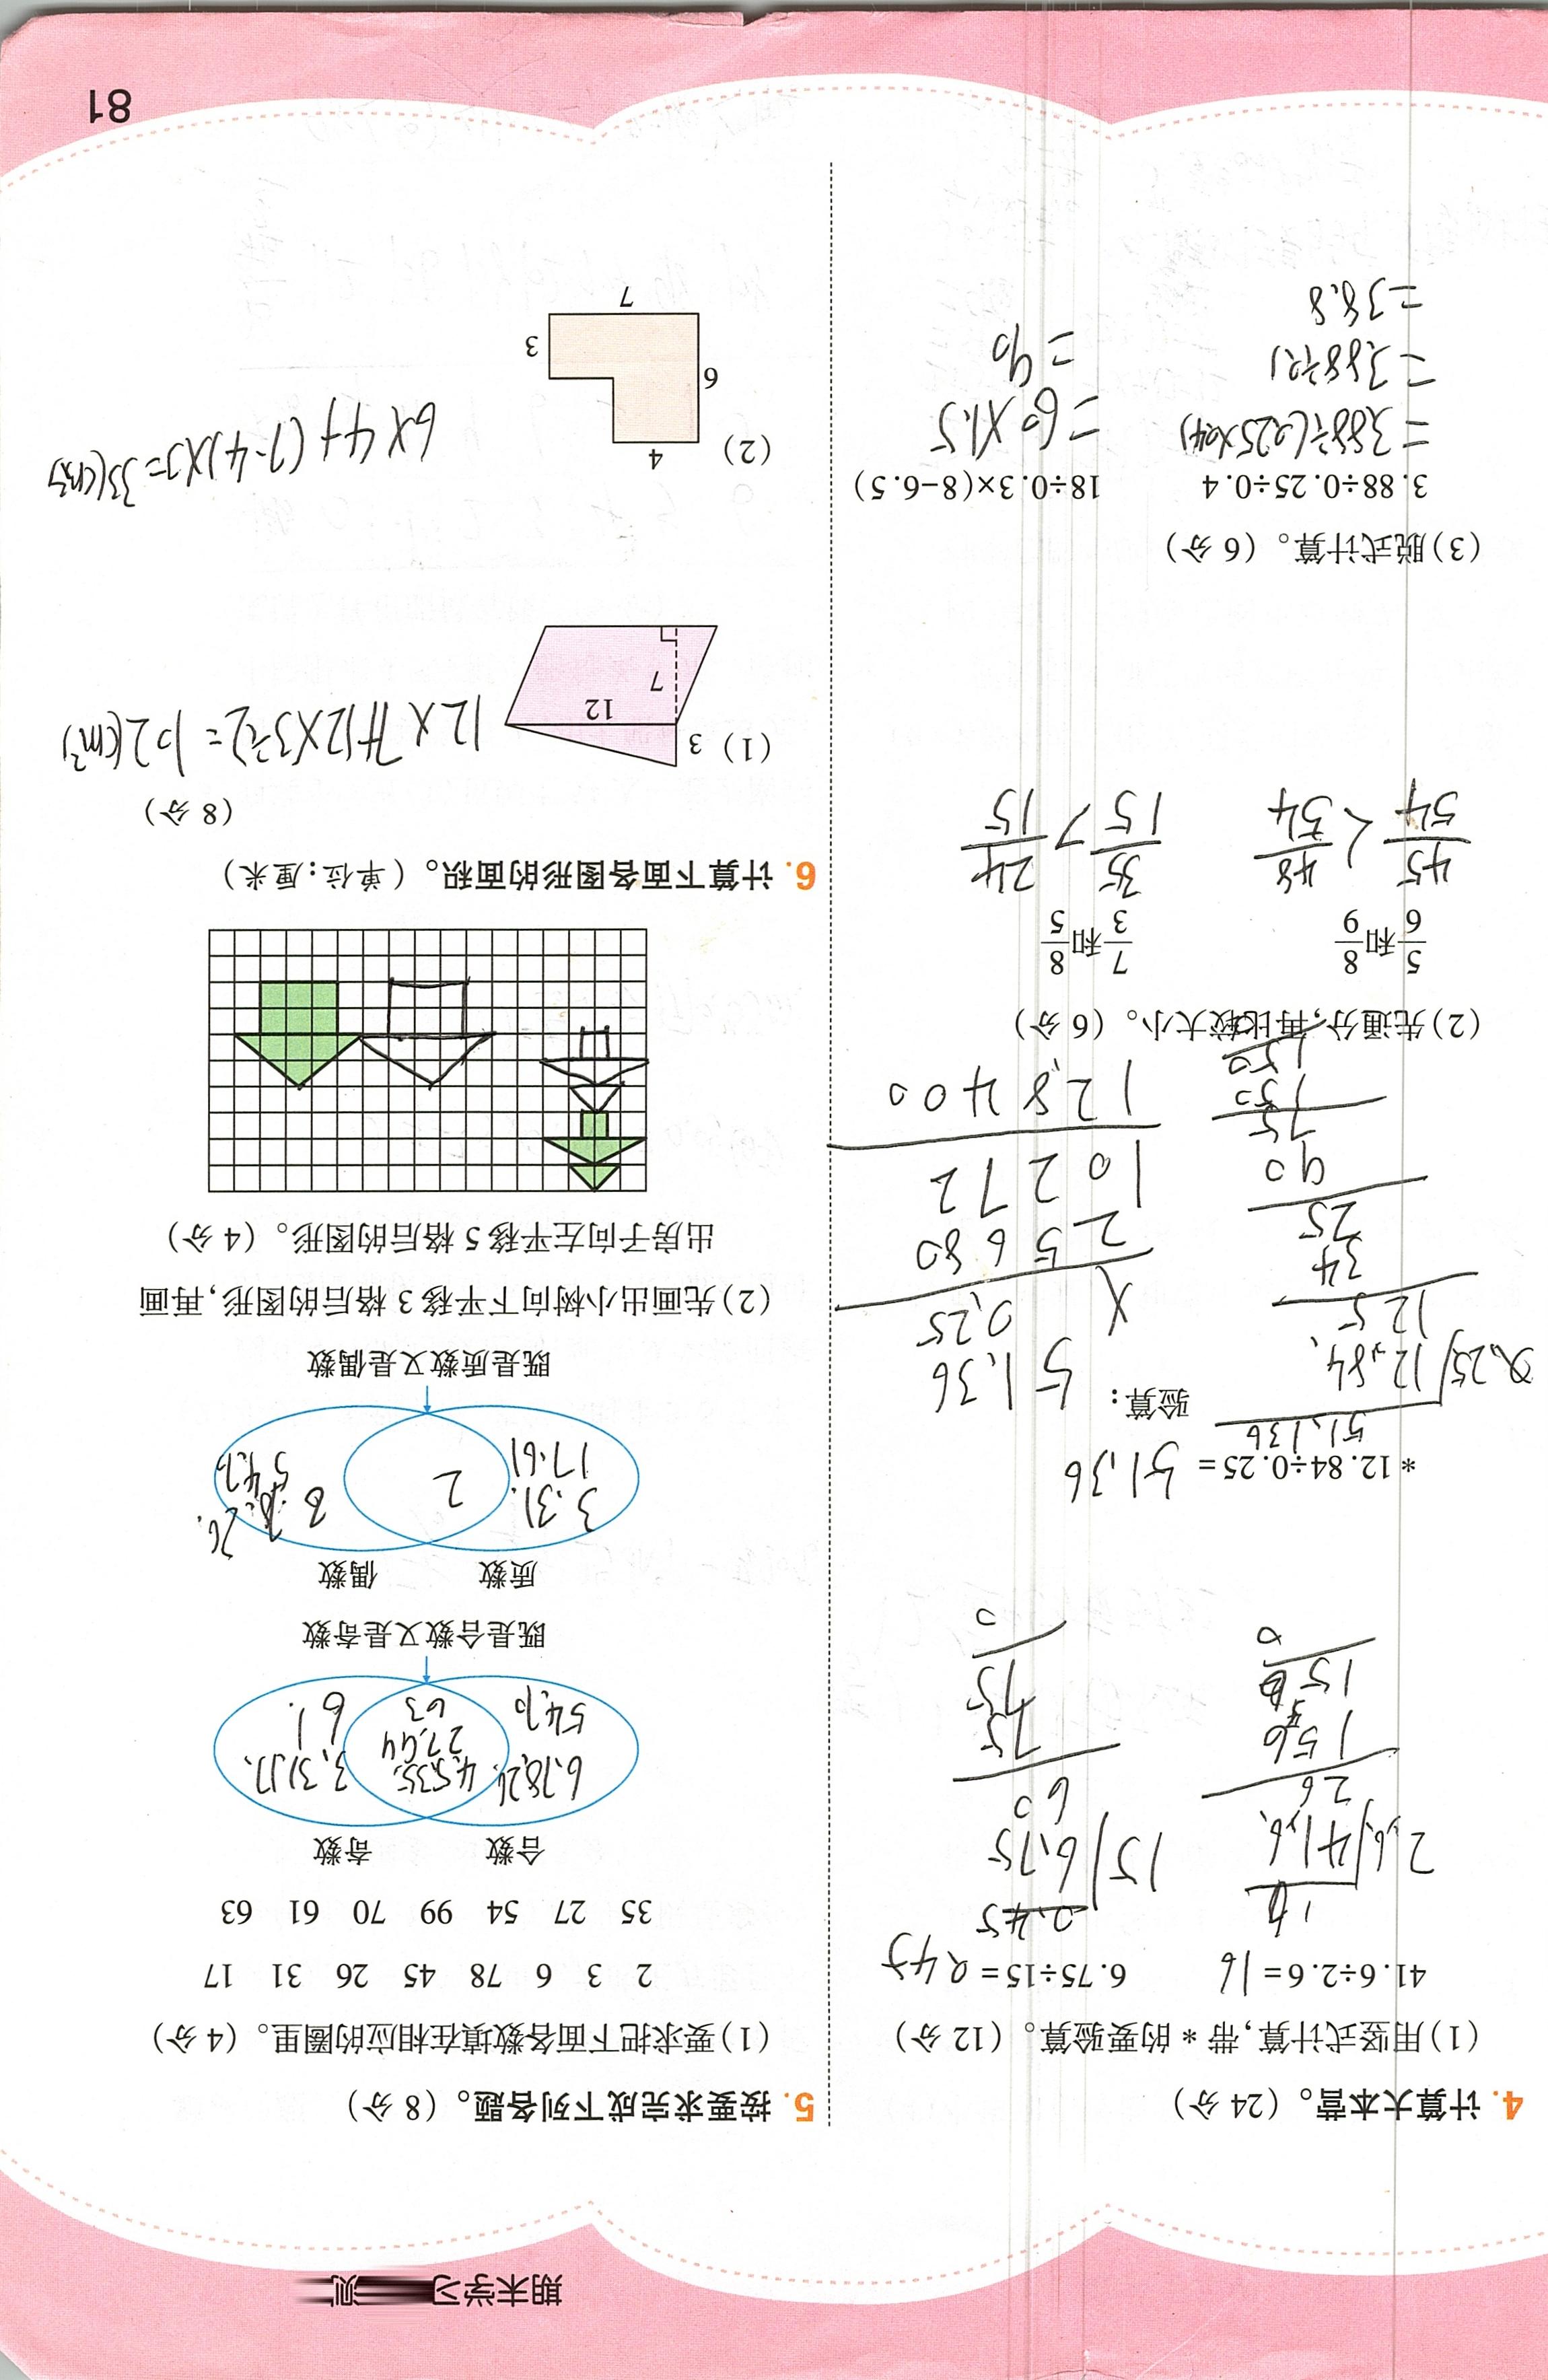 期末学习
测
4. 计算大本营。（24 分）
（1）用竖式计算，带 * 的要验算。（12 分）
41.6÷2.6= 16
6.75÷15= 0.45
2.6 41.6
26
156
0
0.45
15 6.75
60
75
75
0
*12.84÷0.25= 51.36
验算：
0.25 12.84
125
34
25
90
75
150
150
51.36
× 0.25
25680
10272
12.8400
（2）先通分，再比较大小。（6 分）
5/6 和 8/9
7/3 和 8/5
45/54 < 48/54
35/15 > 24/15
（3）脱式计算。（6 分）
3.88÷0.25÷0.4
=3.88÷(0.25×0.4)
=3.88÷0.1
=38.8
18÷0.3×(8-6.5)
=60×1.5
=90
5. 按要求完成下列各题。（8 分）
（1）要求把下面各数填在相应的圈里。（4 分）
2 3 6 78 45 26 31 17
35 27 54 99 70 61 63
合数 奇数
6.78.26.
54.70
45.35.
63
3.31.17.
61
既是合数又是奇数
质数 偶数
3.31.
17.61
2
26.
54.70
既是质数又是偶数
（2）先画出小树向下平移 3 格后的图形，再画
出房子向左平移 5 格后的图形。（4 分）
6. 计算下面各图形的面积。（单位：厘米）
（8 分）
（1）
3
12
7
12×7+(12×3÷2)=102(cm²)
（2）
4
6
3
7
6×4+(7-4)×3=33(cm²)
81